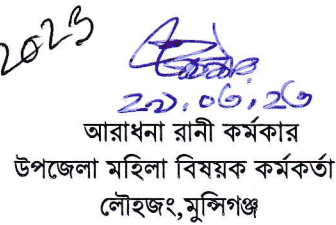 2023
২৯.০৬.২৩
আরাধনা রানী কর্মকার
উপজেলা মহিলা বিষয়ক কর্মকর্তা
লৌহজং,মুন্সিগঞ্জ